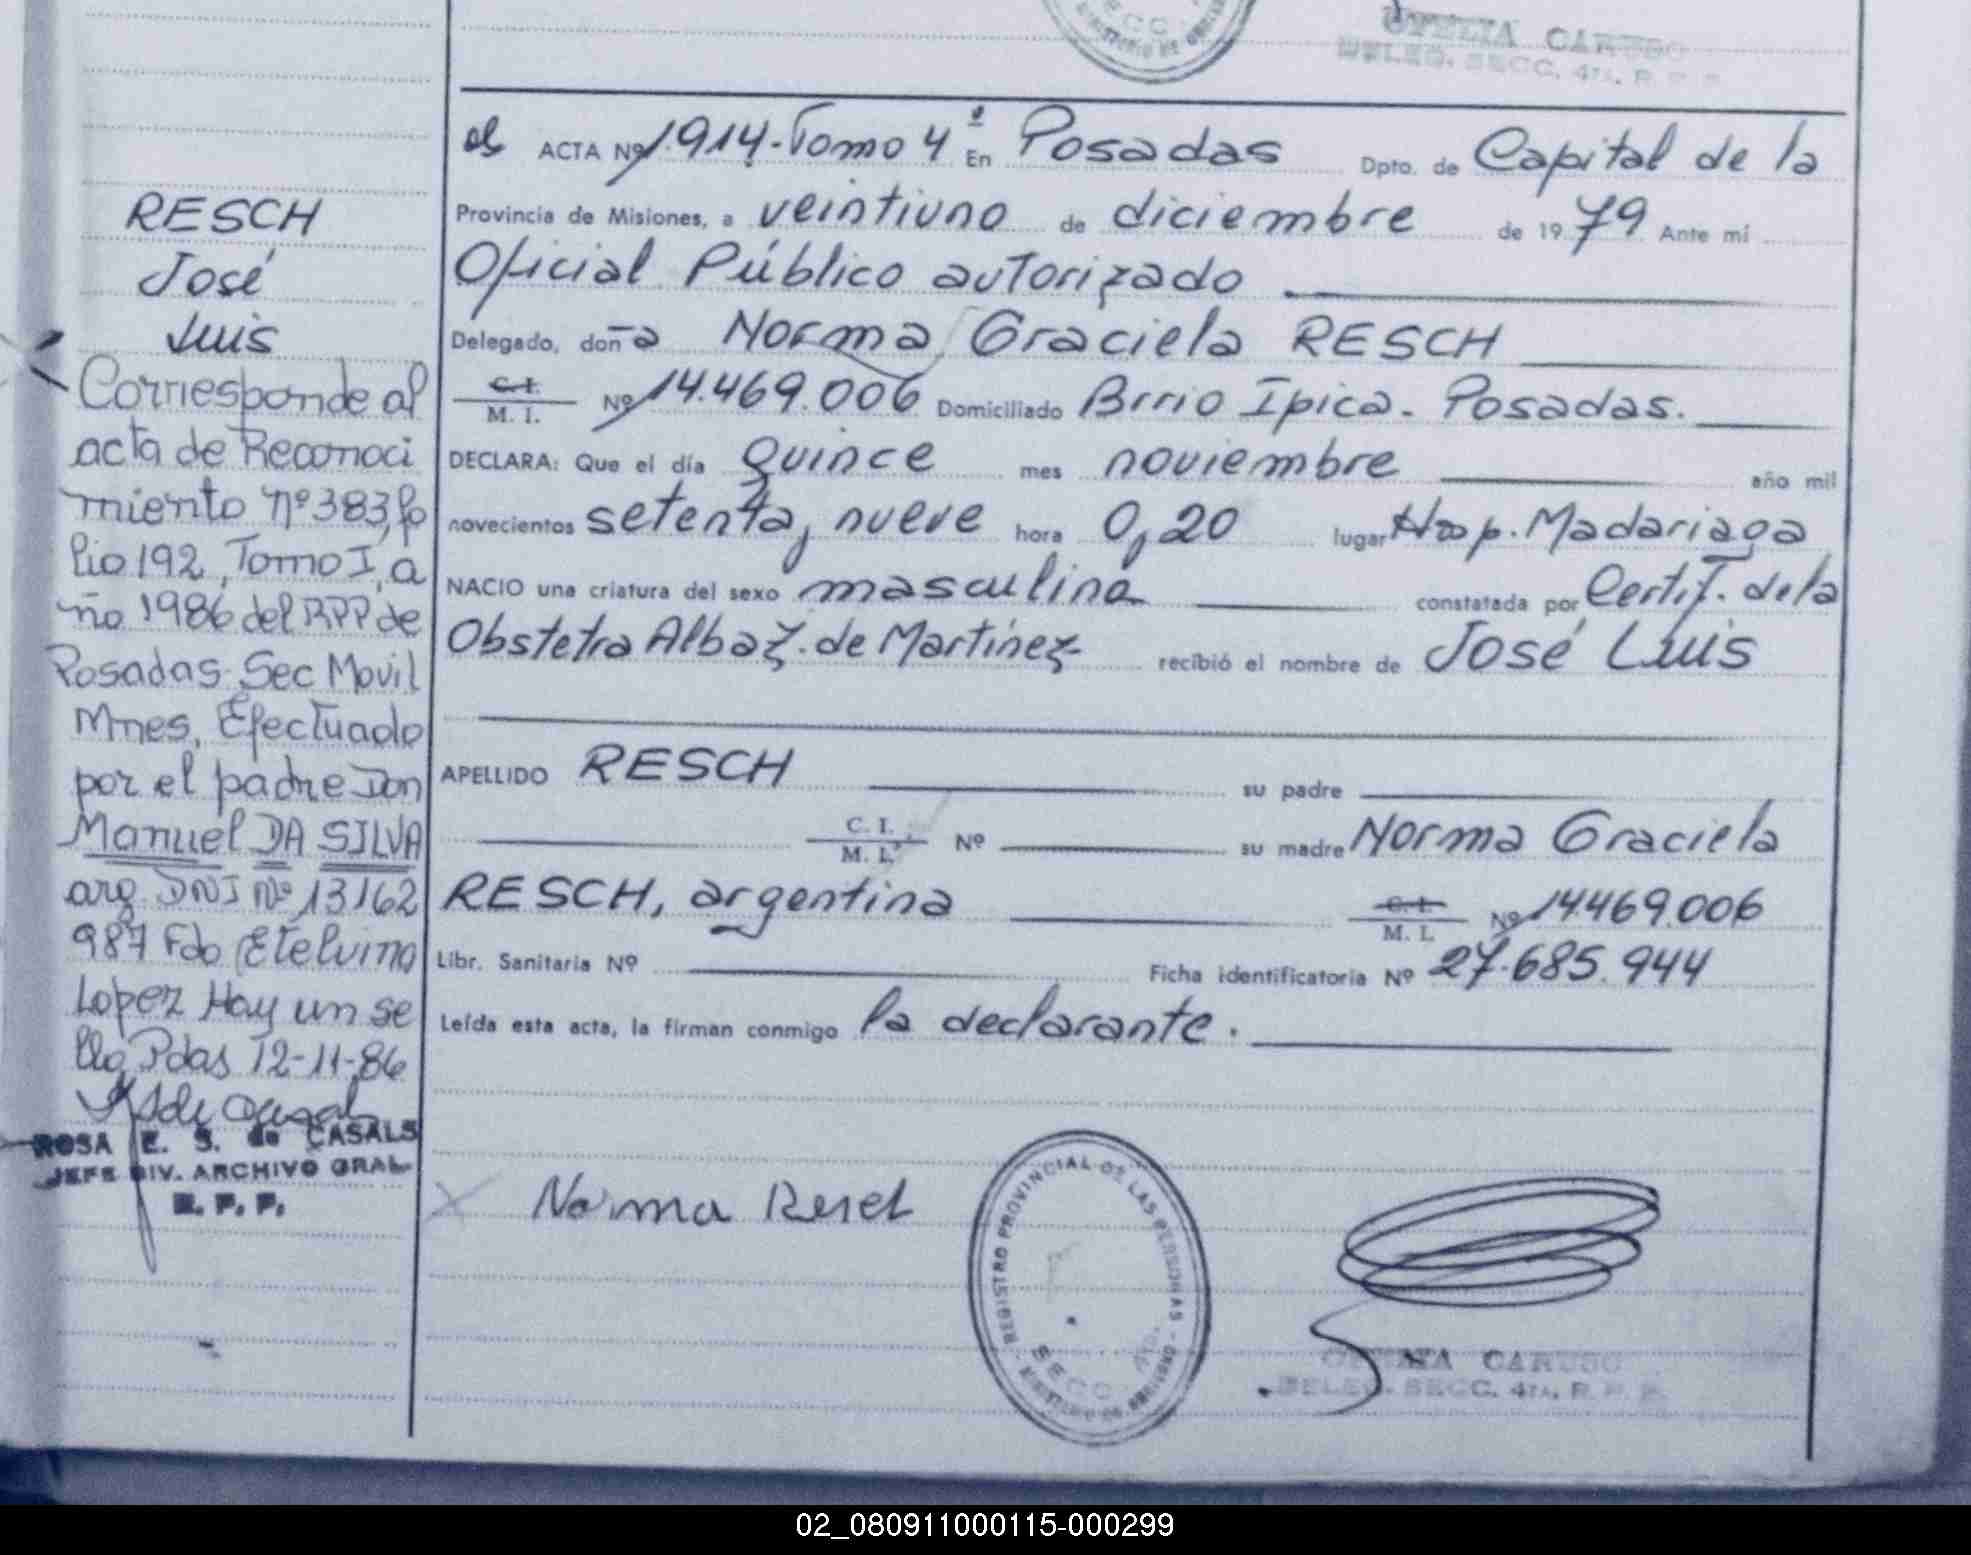 SECC.
MINISTERIO DE GOBIERNO
OFELIA CARUSO
DELEG. SECC. 4TA. R. P. P.
RESCH
José
Luis
Corresponde al
acta de Reconoci
miento Nº 383, fo
lio 192, Tomo I, a
ño 1986 del RPP de
Posadas Sec Movil
Mnes, Efectuado
por el padre Don
Manuel DA SILVA
arg. DNI Nº 13162
987 Fdo Etelvina
Lopez Hay un se
llo Pdas 12-11-86
ROSA E. S. de CASALS
JEFE DIV. ARCHIVO GRAL.
R. P. P.
ACTA Nº 1.914-Tomo 4º En Posadas Dpto. de Capital de la
Provincia de Misiones, a veintiuno de diciembre de 1979 Ante mí
Oficial Público autorizado
Delegado, doña Norma Graciela RESCH
C. I.
M. I. Nº 14.469.006 Domiciliado Brrio Ipica. Posadas.
DECLARA: Que el día quince mes noviembre año mil
novecientos setenta, nueve hora 0,20 lugar Hosp. Madariaga
NACIO una criatura del sexo masculino constatada por Certif. de la
Obstetra Alba Z. de Martínez recibió el nombre de José Luis
APELLIDO RESCH su padre
C. I.
M. I. Nº su madre Norma Graciela
RESCH, argentina C. I.
M. I. Nº 14.469.006
Libr. Sanitaria Nº Ficha identificatoria Nº 27.685.944
Leída esta acta, la firman conmigo la declarante.
Norma Resch
REGISTRO PROVINCIAL DE LAS PERSONAS
SECC. 4TA.
MINISTERIO DE GOBIERNO
OFELIA CARUSO
DELEG. SECC. 4TA. R. P. P.
02_080911000115-000299